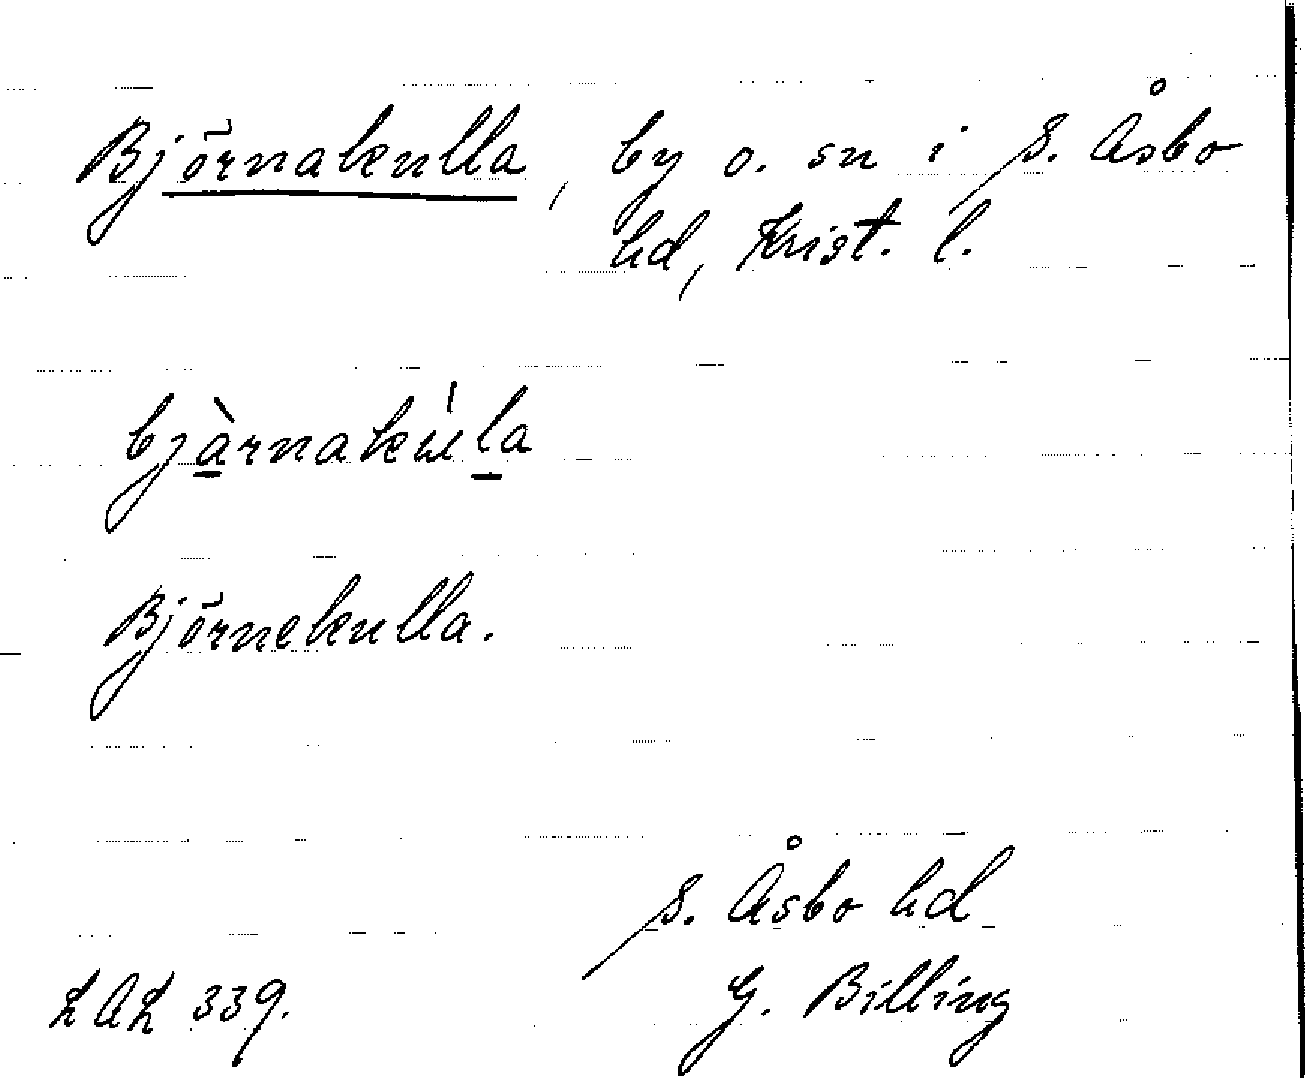 Björnakulla, by o. sn i S. Åsbo
hd, Krist. l.
bjàrnaku̍la
Björnekulla.
S. Åsbo hd
LAL 339. G. Billing